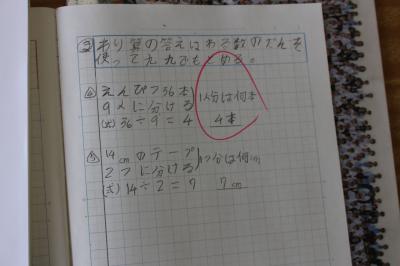 ② わり算の答えはわる数のだんを
使って九九でもとめる。
④ えんぴつ36本
9人に分ける
1人分は何本
(式) 36÷9=4 4本
⑤ 14cmのテープ
2つに分ける
1つ分は何cm
(式) 14÷2=7 7cm